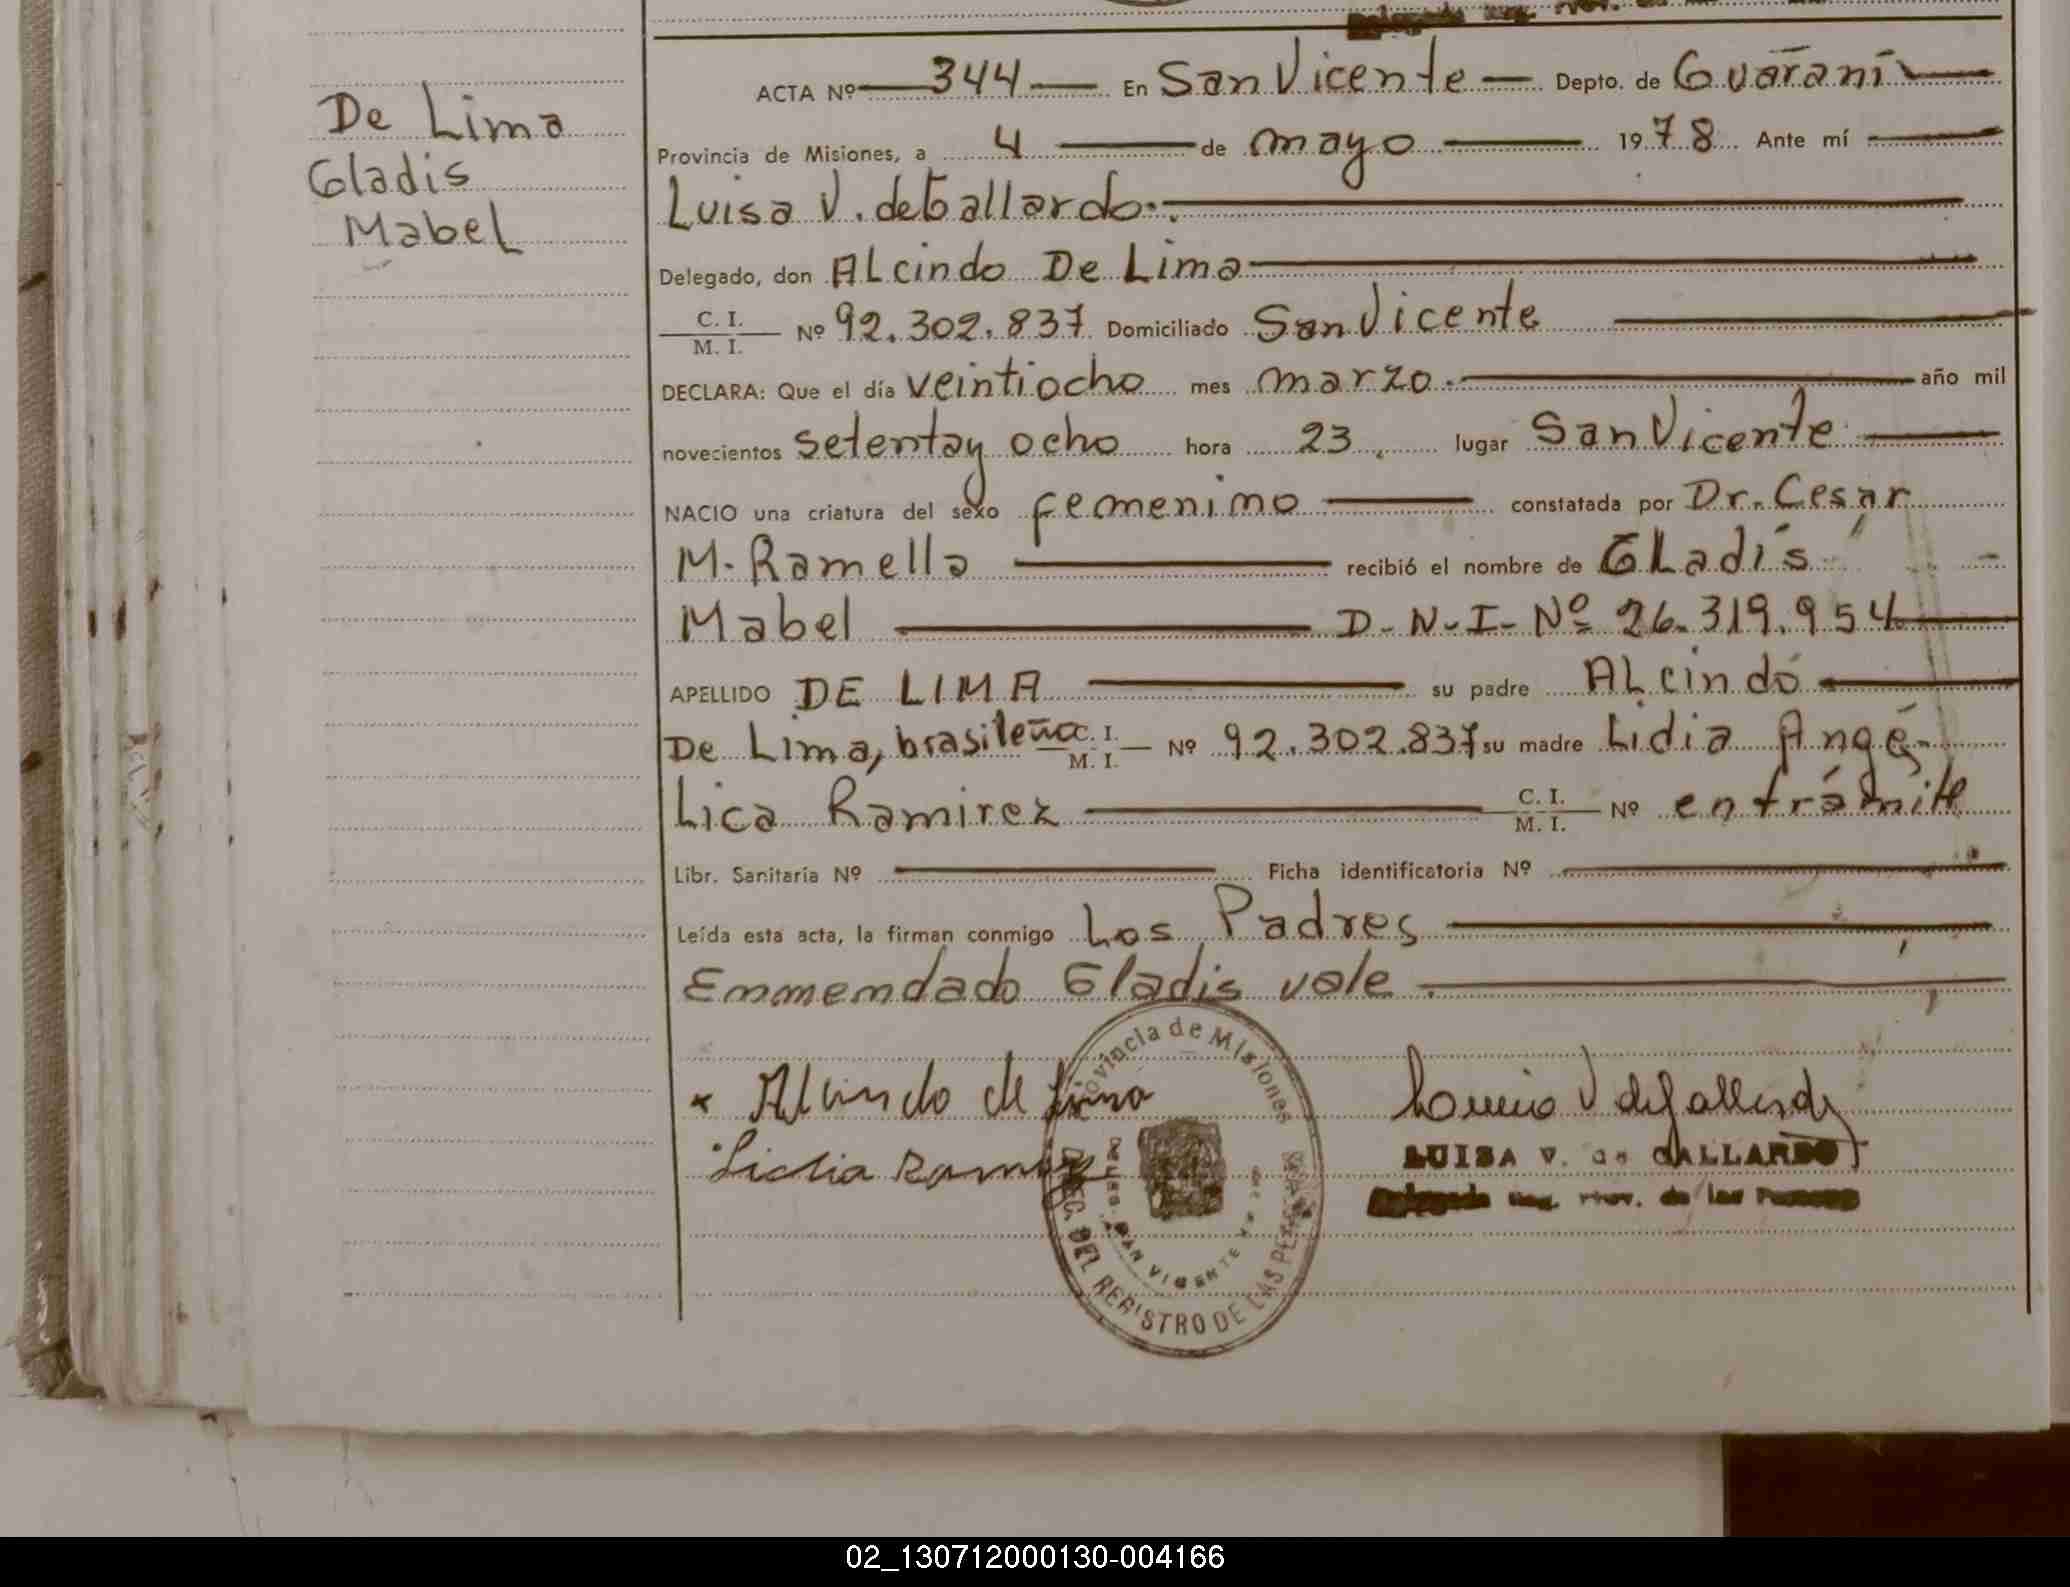 De Lima
Gladis
Mabel
ACTA Nº 344 En San Vicente Depto. de Guaraní
Provincia de Misiones, a 4 de mayo 1978. Ante mí
Luisa V. de Gallardo
Delegado, don ALcindo De Lima
C. I.
M. I. Nº 92.302.837 Domiciliado San Vicente
DECLARA: Que el día veintiocho mes marzo año mil
novecientos setenta y ocho hora 23 lugar San Vicente
NACIO una criatura del sexo femenino constatada por Dr. Cesar
M. Ramella recibió el nombre de GLadis
Mabel D-N-I- Nº 26.319.954
APELLIDO DE LIMA su padre ALcindo
De Lima, brasileño C. I. M. I. Nº 92.302.837 su madre Lidia Angé-
Lica Ramirez C. I. M. I. Nº en trámite
Libr. Sanitaria Nº Ficha identificatoria Nº
Leída esta acta, la firman conmigo Los Padres
Enmendado Gladis vale
Alcindo de Lima
Lidia Ramirez
Provincia de Misiones
DEL REGISTRO DE LAS
SAN VICENTE
LUISA V. de GALLARDO
Delegada Reg. Prov. de las Personas
02_130712000130-004166